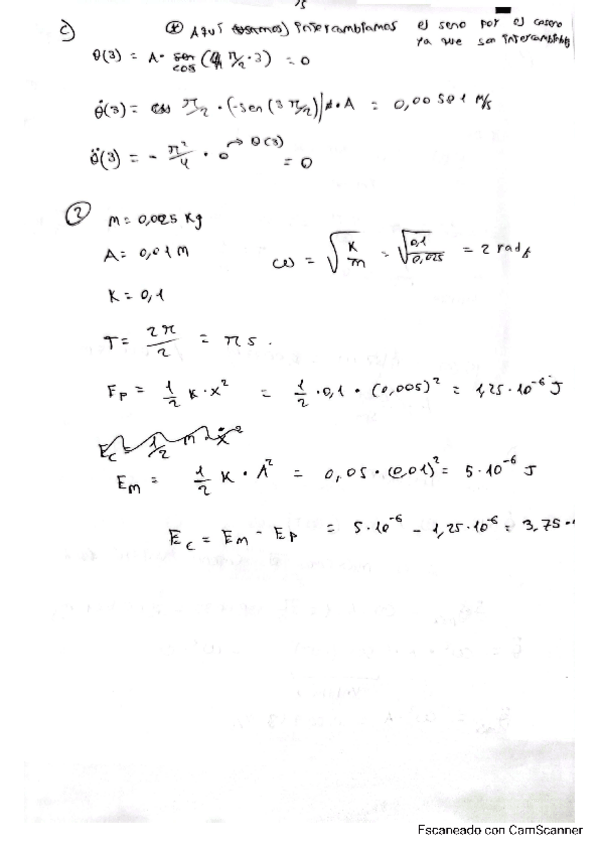 c) (*) Aquí intercambiamos el seno por el coseno
ya que son intercambiables
θ(3) = A · cos (π/2 · 3) = 0
θ̇(3) = π/2 · (-sen (3 π/2)) · A = 0,00581 m/s
θ̈(3) = - π²/4 · 0 → θ(3) = 0
② M = 0,025 Kg
A = 0,01 M
ω = √(K/m) = √(0,1/0,025) = 2 rad/s
K = 0,1
T = 2π/2 = π s.
Ep = 1/2 K · x² = 1/2 · 0,1 · (0,005)² = 1,25 · 10⁻⁶ J
Ec = 1/2 m · ẋ²
EM = 1/2 K · A² = 0,05 · (0,01)² = 5 · 10⁻⁶ J
Ec = EM - Ep = 5 · 10⁻⁶ - 1,25 · 10⁻⁶ = 3,75 ·
Escaneado con CamScanner